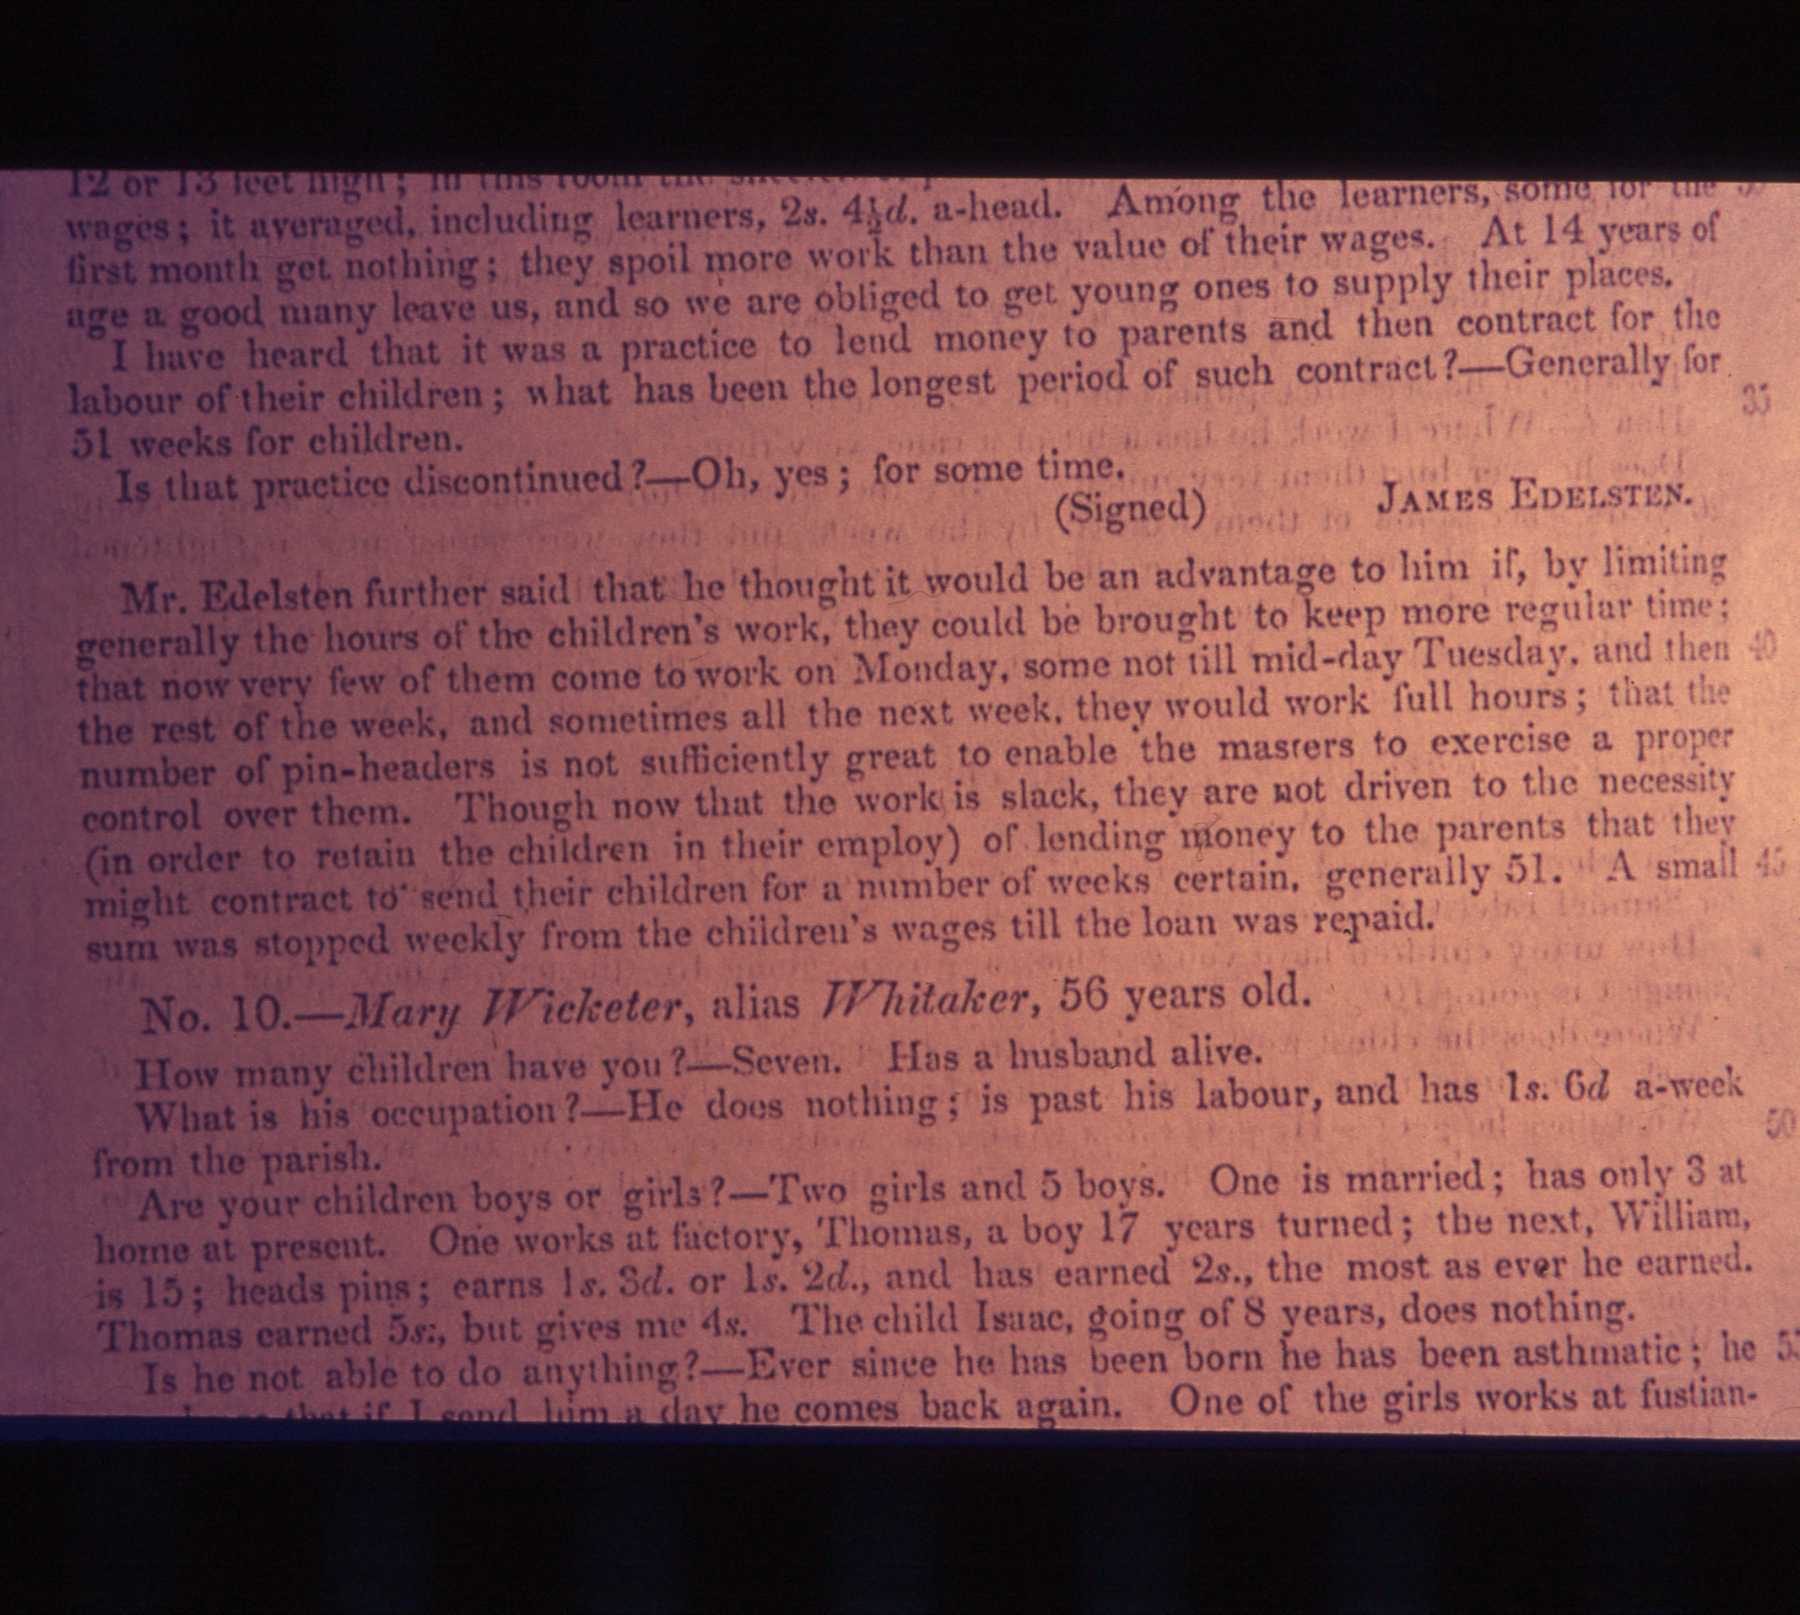 12 or 13 feet high; in this room the
wages; it averaged, including learners, 2s. 4½d. a-head. Among the learners, some for the
first month get nothing; they spoil more work than the value of their wages. At 14 years of
age a good many leave us, and so we are obliged to get young ones to supply their places.
I have heard that it was a practice to lend money to parents and then contract for the
labour of their children; what has been the longest period of such contract?—Generally for
35
51 weeks for children.
Is that practice discontinued?—Oh, yes; for some time.
(Signed) JAMES EDELSTEN.
Mr. Edelsten further said that he thought it would be an advantage to him if, by limiting
generally the hours of the children's work, they could be brought to keep more regular time;
that now very few of them come to work on Monday, some not till mid-day Tuesday, and then 40
the rest of the week, and sometimes all the next week, they would work full hours; that the
number of pin-headers is not sufficiently great to enable the masters to exercise a proper
control over them. Though now that the work is slack, they are not driven to the necessity
(in order to retain the children in their employ) of lending money to the parents that they
might contract to send their children for a number of weeks certain, generally 51. A small 45
sum was stopped weekly from the children's wages till the loan was repaid.
No. 10.—Mary Wicketer, alias Whitaker, 56 years old.
How many children have you?—Seven. Has a husband alive.
What is his occupation?—He does nothing; is past his labour, and has 1s. 6d a-week
50
from the parish.
Are your children boys or girls?—Two girls and 5 boys. One is married; has only 3 at
home at present. One works at factory, Thomas, a boy 17 years turned; the next, William,
is 15; heads pins; earns 1s. 3d. or 1s. 2d., and has earned 2s., the most as ever he earned.
Thomas earned 5s., but gives me 4s. The child Isaac, going of 8 years, does nothing.
Is he not able to do anything?—Ever since he has been born he has been asthmatic; he
that if I send him a day he comes back again. One of the girls works at fustian-